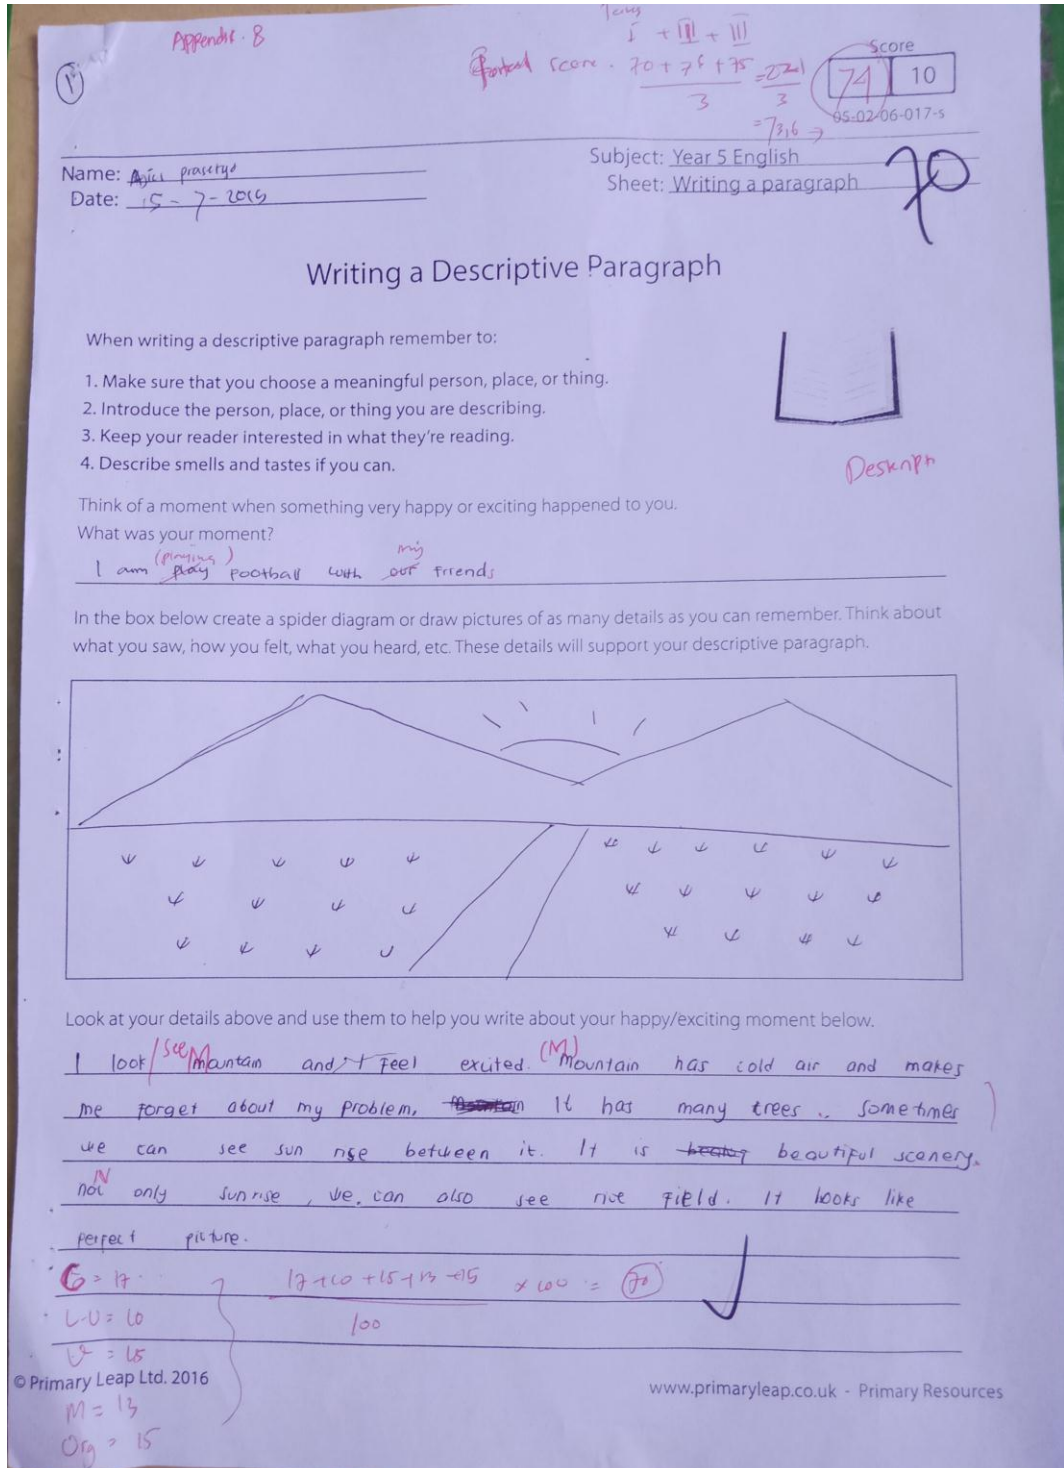 Appendix. 8
I + III + III
score. 70 + 76 + 75 = 221
3 3
= 73,6 →
Score
74 10
05-02-06-017-s
Name: prasetyo
Date: 15-7-2019
Subject: Year 5 English
Sheet: Writing a paragraph
70
Writing a Descriptive Paragraph
When writing a descriptive paragraph remember to:
1. Make sure that you choose a meaningful person, place, or thing.
2. Introduce the person, place, or thing you are describing.
3. Keep your reader interested in what they're reading.
4. Describe smells and tastes if you can.
Think of a moment when something very happy or exciting happened to you.
What was your moment?
(playing) my
I am play football with our friends
In the box below create a spider diagram or draw pictures of as many details as you can remember. Think about
what you saw, how you felt, what you heard, etc. These details will support your descriptive paragraph.
Look at your details above and use them to help you write about your happy/exciting moment below.
I look/see Mountain and I Feel excited. (M)mountain has cold air and makes
me forget about my problem. It has many trees .. sometimes
we can see sun rise between it. It is beautiful scenery.
N
not only sunrise, we. can also see rice field. It looks like
perfect picture.
G = 17
17+10+15+13+15 x 100 = 70
L.U = 10
100
V = 15
© Primary Leap Ltd. 2016
www.primaryleap.co.uk - Primary Resources
M = 13
Org = 15